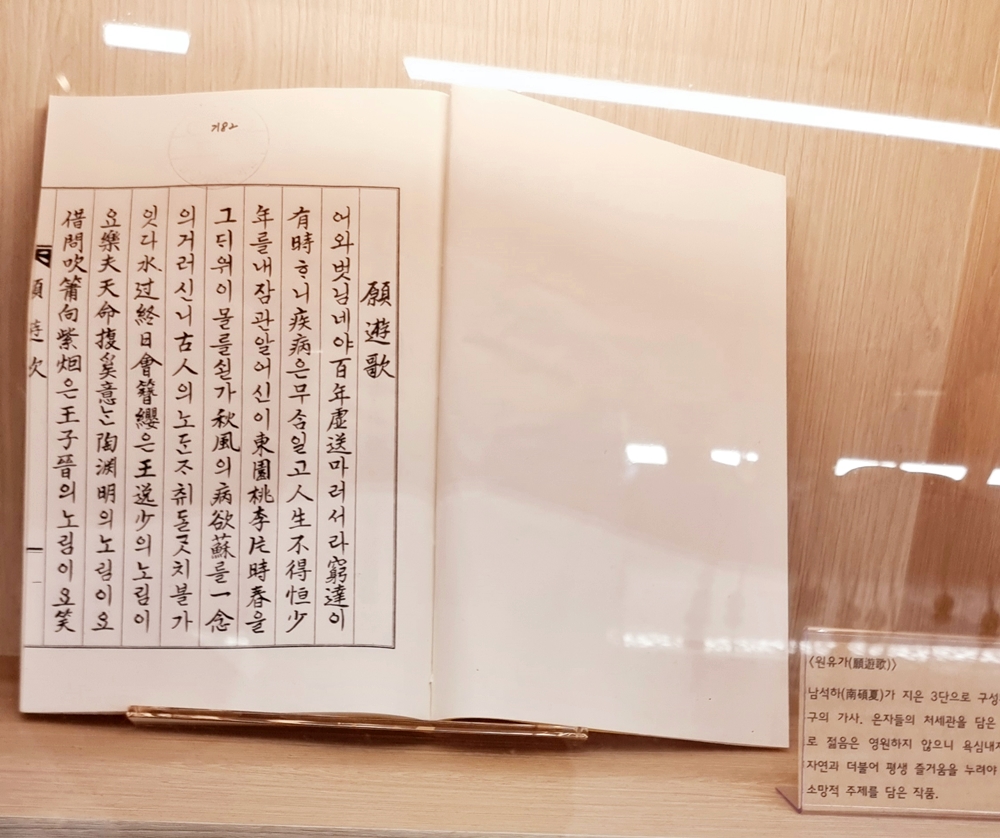 기82
願遊歌
어와벗님네야百年虛送마러서라窮達이
有時ᄒᆞ니疾病은무ᄉᆞᆷ일고人生不得恒少
年를내잠관알어신이東園桃李片時春을
그듸위이몰를쇤가秋風의病欲蘇를一念
의거러신니古人의노든조취돌곳치불가
잇다水过終日會簪纓은王逸少의노림이
요樂夫天命復奚意는陶渊明의노림이요
借問吹簫向紫烟은王子晉의노림이요笑
〈원유가(願遊歌)〉
남석하(南碩夏)가 지은 3단으로 구성
구의 가사. 은자들의 처세관을 담은
로 젊음은 영원하지 않으니 욕심내지
자연과 더불어 평생 즐거움을 누려야
소망적 주제를 담은 작품.